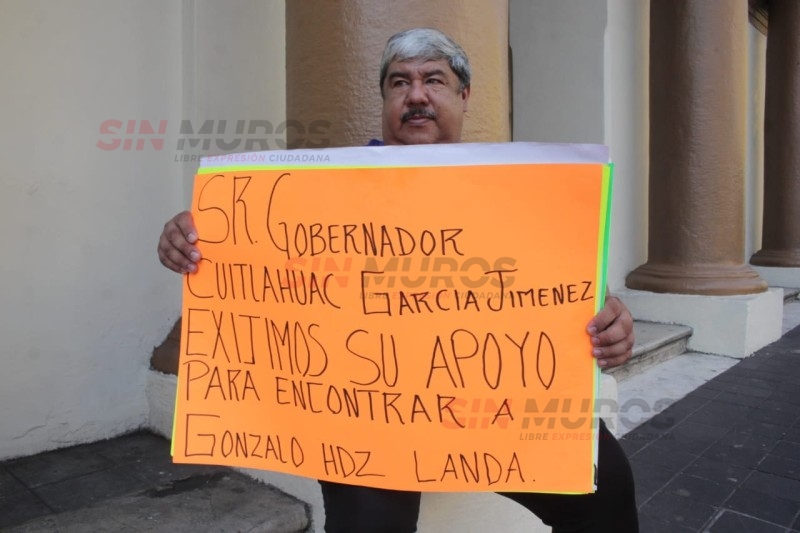 SIN MUROS
LIBRE EXPRESIÓN CIUDADANA
SR. GOBERNADOR
CUITLAHUAC GARCIA JIMENEZ
EXIJIMOS SU APOYO
PARA ENCONTRAR A
GONZALO HDZ LANDA.
SIN MUROS
LIBRE EXPRESIÓN CIUDADANA
SIN MUROS
LIBRE EXPRESIÓN CIUDADANA